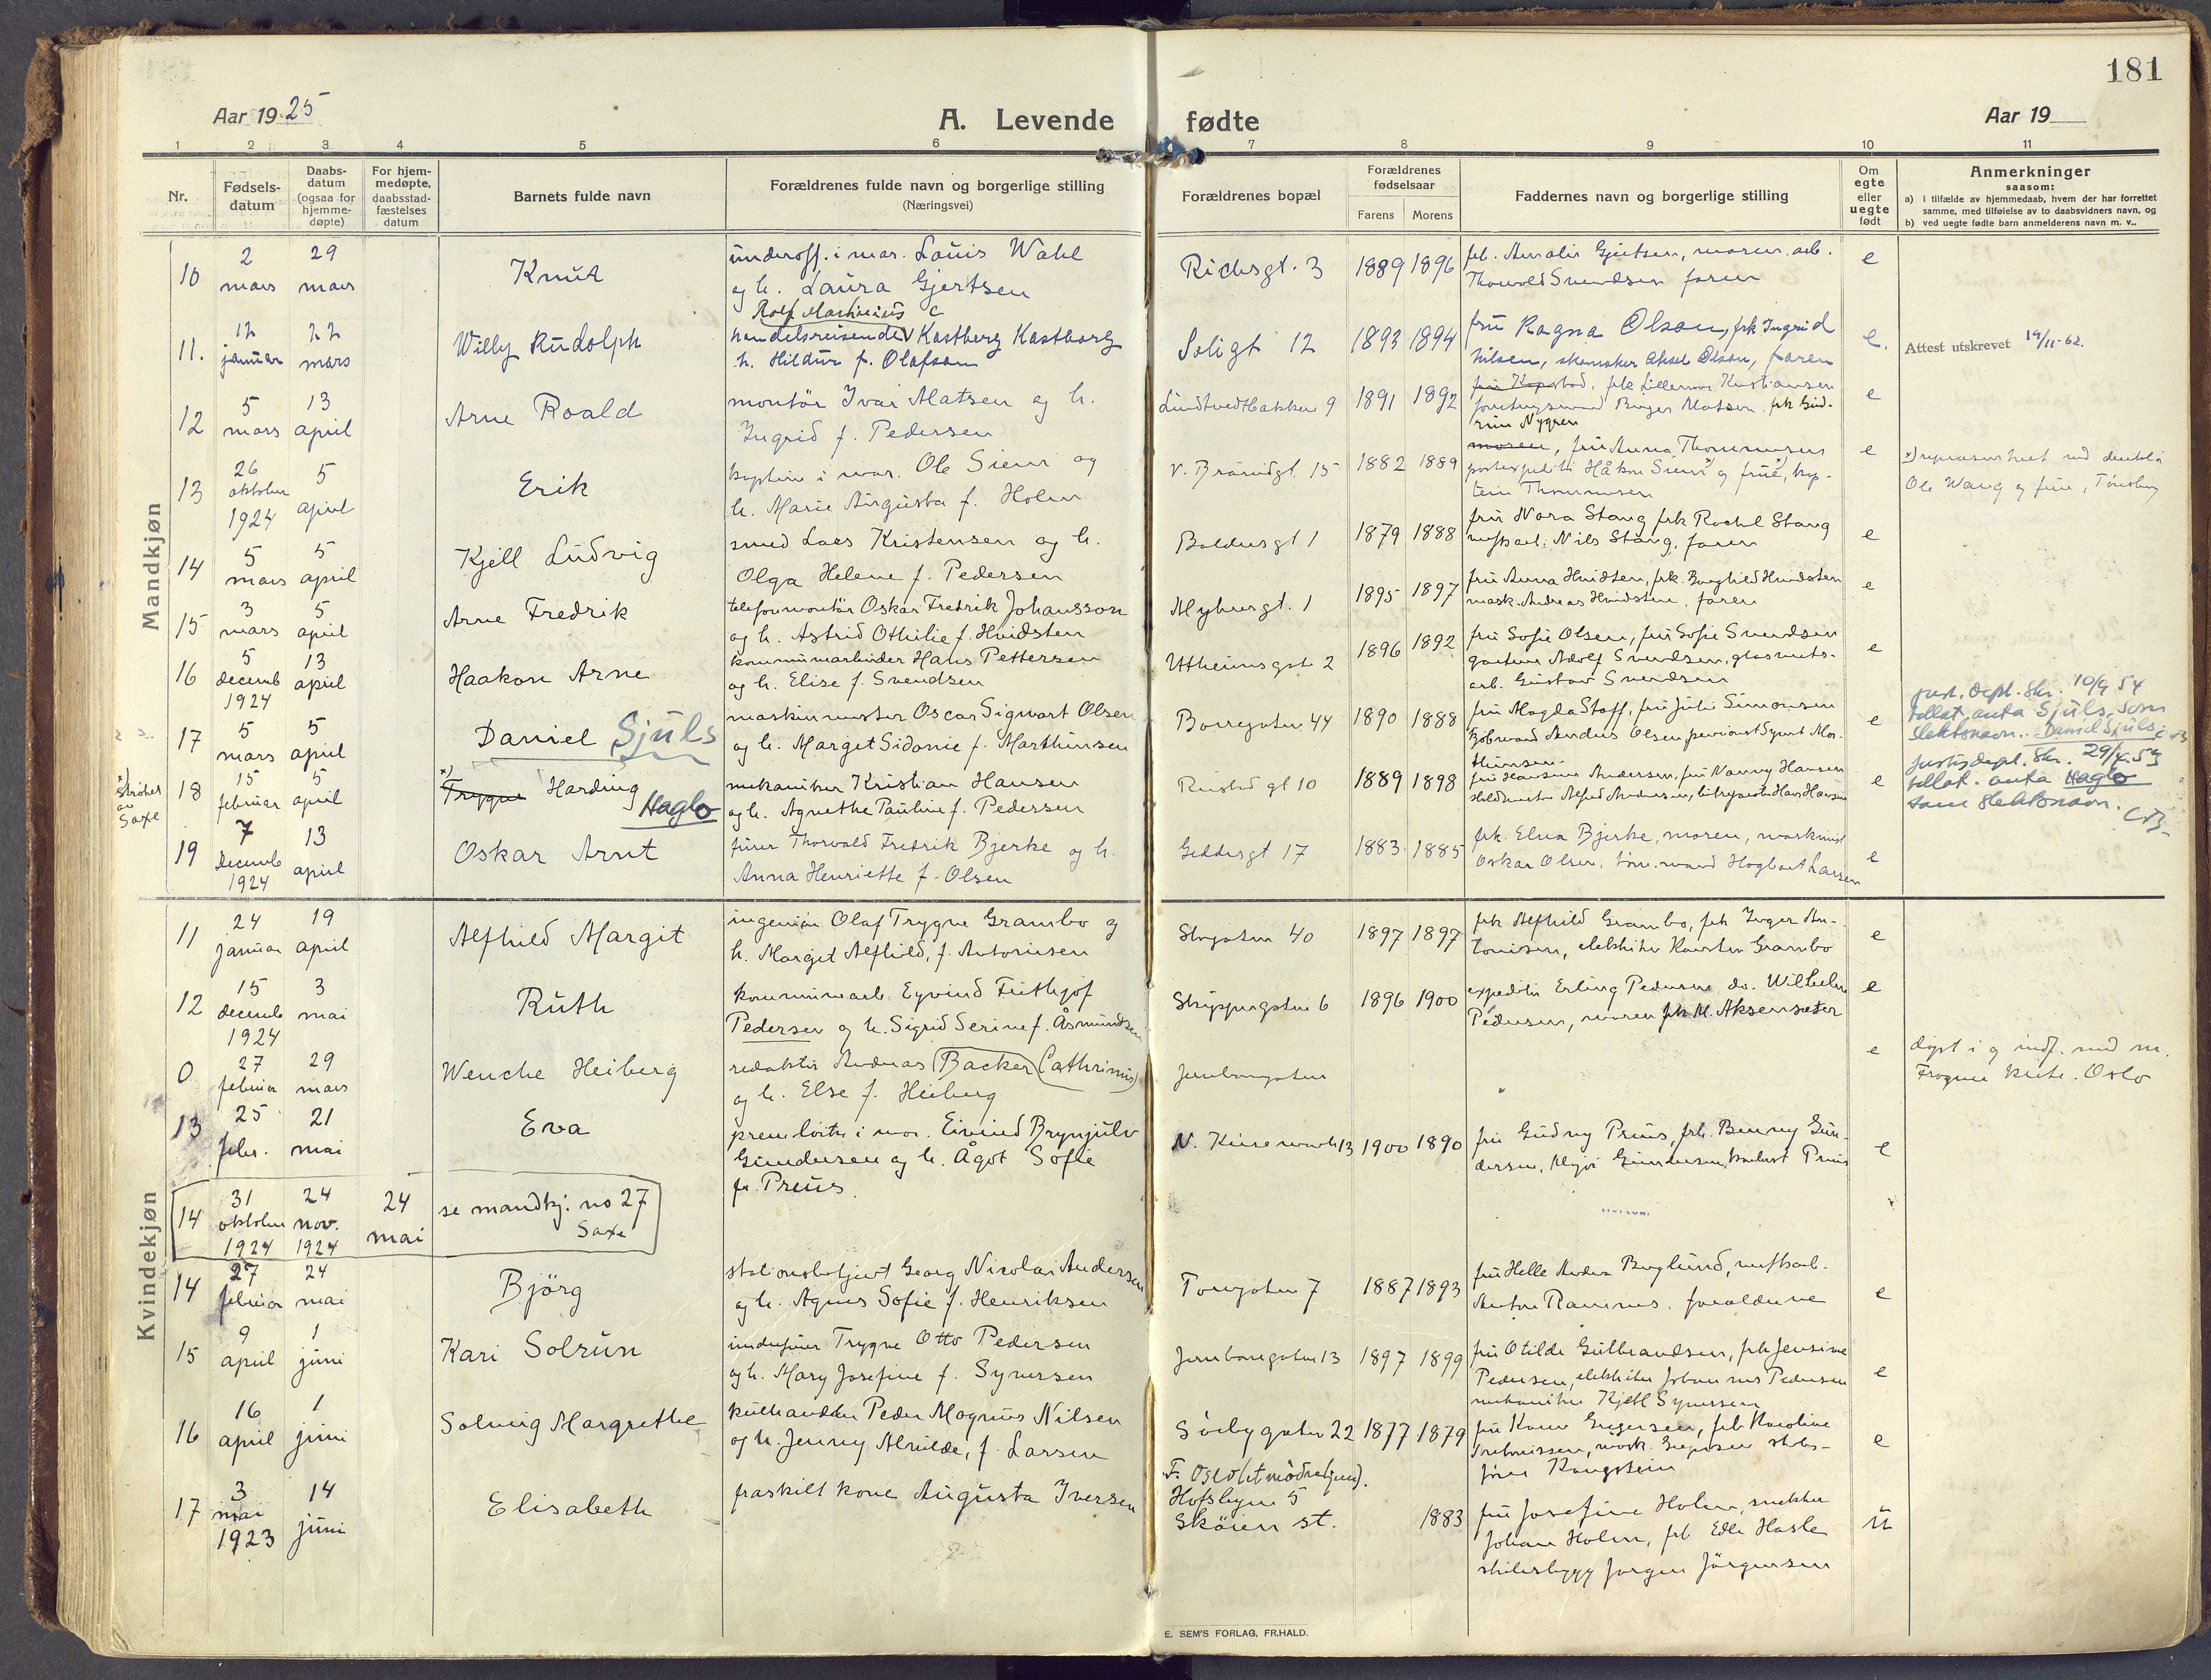 181
Aar 19 25
A. Levende fødte
Aar 19
1 2 3 4 5 6 7 8 9 10 11
Nr.
Fødsels-
datum
Daabs-
datum
(ogsaa for
hjemme-
døpte)
For hjem-
medøpte,
daabsstad-
fæstelses
datum
Barnets fulde navn
Forældrenes fulde navn og borgerlige stilling
(Næringsvei)
Forældrenes bopæl
Forældrenes
fødselsaar
Farens Morens
Faddernes navn og borgerlige stilling
Om
egte
eller
uegte
født
Anmerkninger
saasom:
a) i tilfælde av hjemmedaab, hvem der har forrettet
samme, med tilføielse av to daabsvidners navn, og
b) ved uegte fødte barn anmelderens navn m. v..
Mandkjøn
10 2 mars 29 mars Knut
underoff. i mar. Louis Wahl
og h. Laura Gjertsen
Richsgt. 3 1889 1896
Thorvald Svendsen faren
e
11. 12 januar 22 mars Willy Rudolph
Rolf Martinius
handelsreisende Kastberg Kastborg
h. Hildur f. Olafson
Soligt 12 1893 1894
fru Ragna Olson, frk Ingrid
Nilsen, skomaker Aksel Olson, faren
e.
Attest utskrevet 19/11-62.
12 5 mars 13 april Arne Roald
montör Ivar Matsen og h.
Ingrid f. Pedersen
Lindtvedtbakken 9 1891 1892
frk Lillemor Kristiansen
Birger Matsen, frk Gud-
run Nygren
e
13 26 oktober 1924 5 april Erik
kaptein i mar. Ole Siem og
h. Marie Augusta f. Holm
1882 1889
moren, fru Anna Thommesen
Håkon Siem og frue, kap-
tein Thommesen
e
Ole Wang og frue, Tönsberg
14 5 mars 5 april Kjell Ludvig
smed Lars Kristensen og h.
Olga Helene f. Pedersen
Baldersgt 1 1879 1888
fru Nora Stang frk Rachel Stang
Nils Stang, faren
e
15 3 mars 5 april Arne Fredrik
telefonmontör Oskar Fredrik Johansson
og h. Astrid Othilie f. Hvidsten
Myhresgt. 1 1895 1897
fru Anna Hvidsten, frk. Borghild Hvidsten
mask. Andreas Hvidsten, faren
e
16 5 decemb 1924 13 april Haakon Arne
kommunearbeider Hans Pettersen
og h. Elise f. Svendsen
1896 1892
fru Sofie Olsen, fru Sofie Svendsen
gartner Adolf Svendsen, glasverks-
arb. Gustav Svendsen
e
17 5 mars 5 april Daniel Sjuls
maskinmester Oscar Sigwart Olsen
og h. Marget Sidonie f. Marthinsen
Borregaten 44 1890 1888
fru Magda Staff, fru Julie Simonsen
e
just. dept. skr. 10/9 54
tillat. anta Sjuls som
slektsnavn. Daniel Sjuls
18 15 februar 5 april Trygve Harding Haglo
mekaniker Kristian Hansen
og h. Agnethe Pauline f. Pedersen
1889 1898
fru Nanny Hansen
e
Justisdept. skr. 29/4 53
tillat. anta Haglo
som slektsnavn.
strøket
av
Saxe
19 7 Decemb 1924 13 april Oskar Arnt
fürer Thorvald Fredrik Bjerke og h.
Anna Henriette f. Olsen
Geddesgt 17 1883 1885
frk. Elna Bjerke, moren,
Oskar Olsen, Hagbart Larsen
e
Kvindekjøn
11 24 januar 19 april Alfhild Margit
ingeniör Olaf Trygve Grambo og
h. Margit Alfhild, f. Antonisen
Storgaten 40 1897 1897
frk Alfhild Grambo, frk Inger An-
tonisen, elektriker Karsten Grambo
e
12 15 decemb 1924 3 mai Ruth
kommunearb. Eyvind Frithjof
Pedersen og h. Sigrid Serine f. Åsmundsen
1896 1900
expeditör Erling Pedersen, do. Wilhelm
Pedersen, moren frk M. Aksensæter
e
0 27 februar 29 mars Wenche Heiberg
redaktör Andreas Backer Cathrinus
og h. Else f. Heiberg
Jernbanegaten
e
døpt i og indf. med nr.
Frogner kirke. Oslo
13 25 febr. 21 mai Eva
prem. löitn. i mar. Eivind Brynjulv
Gundersen og h. Ågot Sofie
f. Preus.
1900 1890
fru Gudny Preus, frk. Benny Gun-
dersen,
e
14 31 oktober 1924 24 nov. 1924 24 mai
se mandkj: no 27
Saxe
14 27 februar 24 mai Björg
stationsbetjent Georg Nicolai Andersen
og h. Agnes Sofie f. Henriksen
Torvgaten 7 1887 1893
Anton Ramnes, foraldrene
e
15 9 april 1 juni Kari Solrun
underfürer Trygve Otto Pedersen
og h. Mary Josefine f. Syversen
Jernbanegaten 13 1897 1899
fru Otilde Gulbrandsen, frk Jensine
Pedersen, elektriker Johannes Pedersen
mekaniker Kjell Syversen
e
16 16 april 1 juni Solveig Margrethe
kulhandler Peder Magnus Nilsen
og h. Jenny Alvilde, f. Larsen
Sörbygaten 22 1877 1879
e
17 3 mai 1923 14 juni Elisabeth
fraskilt kone Augusta Iversen
Hofsbyen 5
Sköien st.
1883
fru Josefine Holm, snekker
Johan Holm, frk Edle Hasle
skibsbygg Jörgen Jörgensen
u
E. SEM'S FORLAG, FR.HALD.